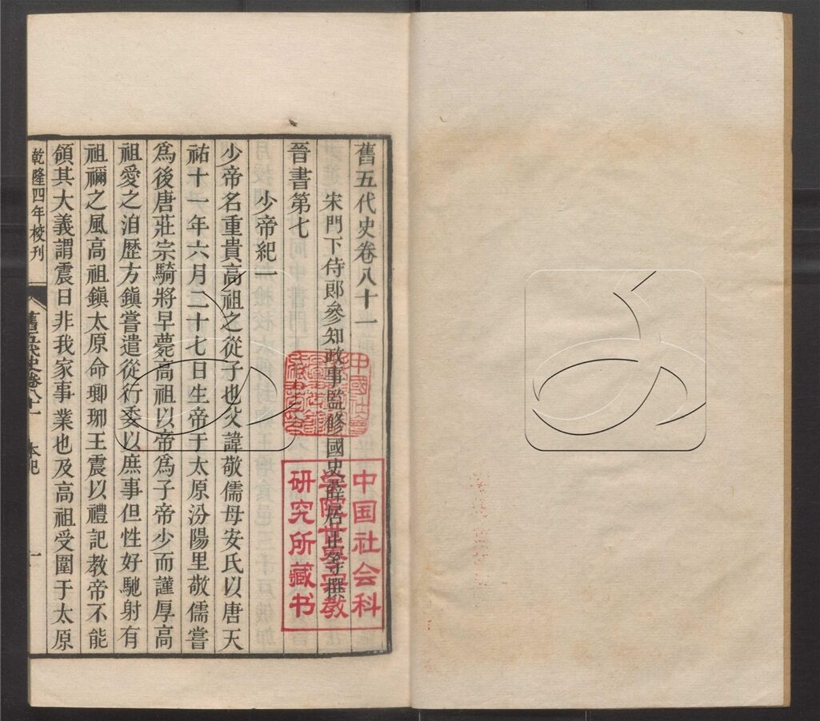 舊五代史卷八十一
宋門下侍郎參知政事監修國史薛居正等撰
晉書第七
少帝紀一
少帝名重貴高祖之從子也父諱敬儒母安氏以唐天
祐十一年六月二十七日生帝于太原汾陽里敬儒嘗
爲後唐莊宗騎將早薨高祖以帝爲子帝少而謹厚高
祖愛之洎歷方鎮嘗遣從行委以庶事但性好馳射有
祖禰之風高祖鎮太原命瑯琊王震以禮記教帝不能
領其大義謂震曰非我家事業也及高祖受圍于太原
乾隆四年校刊
舊五代史卷八十一
本紀
一
中国社会科
学院世界宗教
研究所藏书